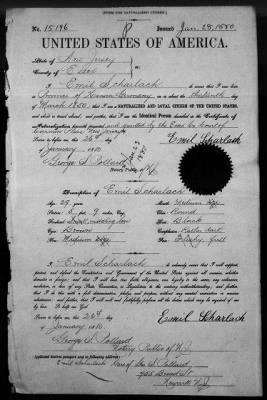 [FORM FOR NATURALIZED CITIZEN.]
No. 15196 Issued Jan. 28, 1880.
UNITED STATES OF AMERICA.
State of New Jersey
County of Essex
I, Emil Scharlach do swear that I was born in
Province of Germany on or about the thirteenth day
of March 1850; that I am a NATURALIZED AND LOYAL CITIZEN OF THE UNITED STATES,
and about to travel abroad; and further, that I am the Identical Person described in the Certificate of
Naturalization granted by the Essex Co Court of
Common Pleas New Jersey
Sworn to before me this 26th
day of January 1880 Emil Scharlach
George S. Pollard
Notary Public
Description of Emil Scharlach
Age: 29 years
Stature: 5 feet 9 inches, Eng.
Forehead:
Eyes: Brown
Nose: Medium
Mouth: Medium
Chin: Round
Hair: Black
Complexion: Rather dark
Face: Fleshy, full
I, Emil Scharlach do solemnly swear that I will support,
protect and defend the Constitution and Government of the United States against all enemies, whether
domestic or foreign; and that I will bear true faith, allegiance and loyalty to the same, any ordinance,
resolution, or law of any State, Convention, or Legislature to the contrary notwithstanding; and further,
that I do this with a full determination, pledge, and purpose, without any mental reservation or evasion
whatsoever; and further, that I will well and faithfully perform all the duties which may be required of me
by law. So help me God.
Sworn to before me this 26th
day of January 1880. Emil Scharlach
George S. Pollard
Notary Public of N.J.
Applicant desires passport sent to following address:
Emil Scharlach Care of Geo S. Pollard
Broad St
Newark N.J.